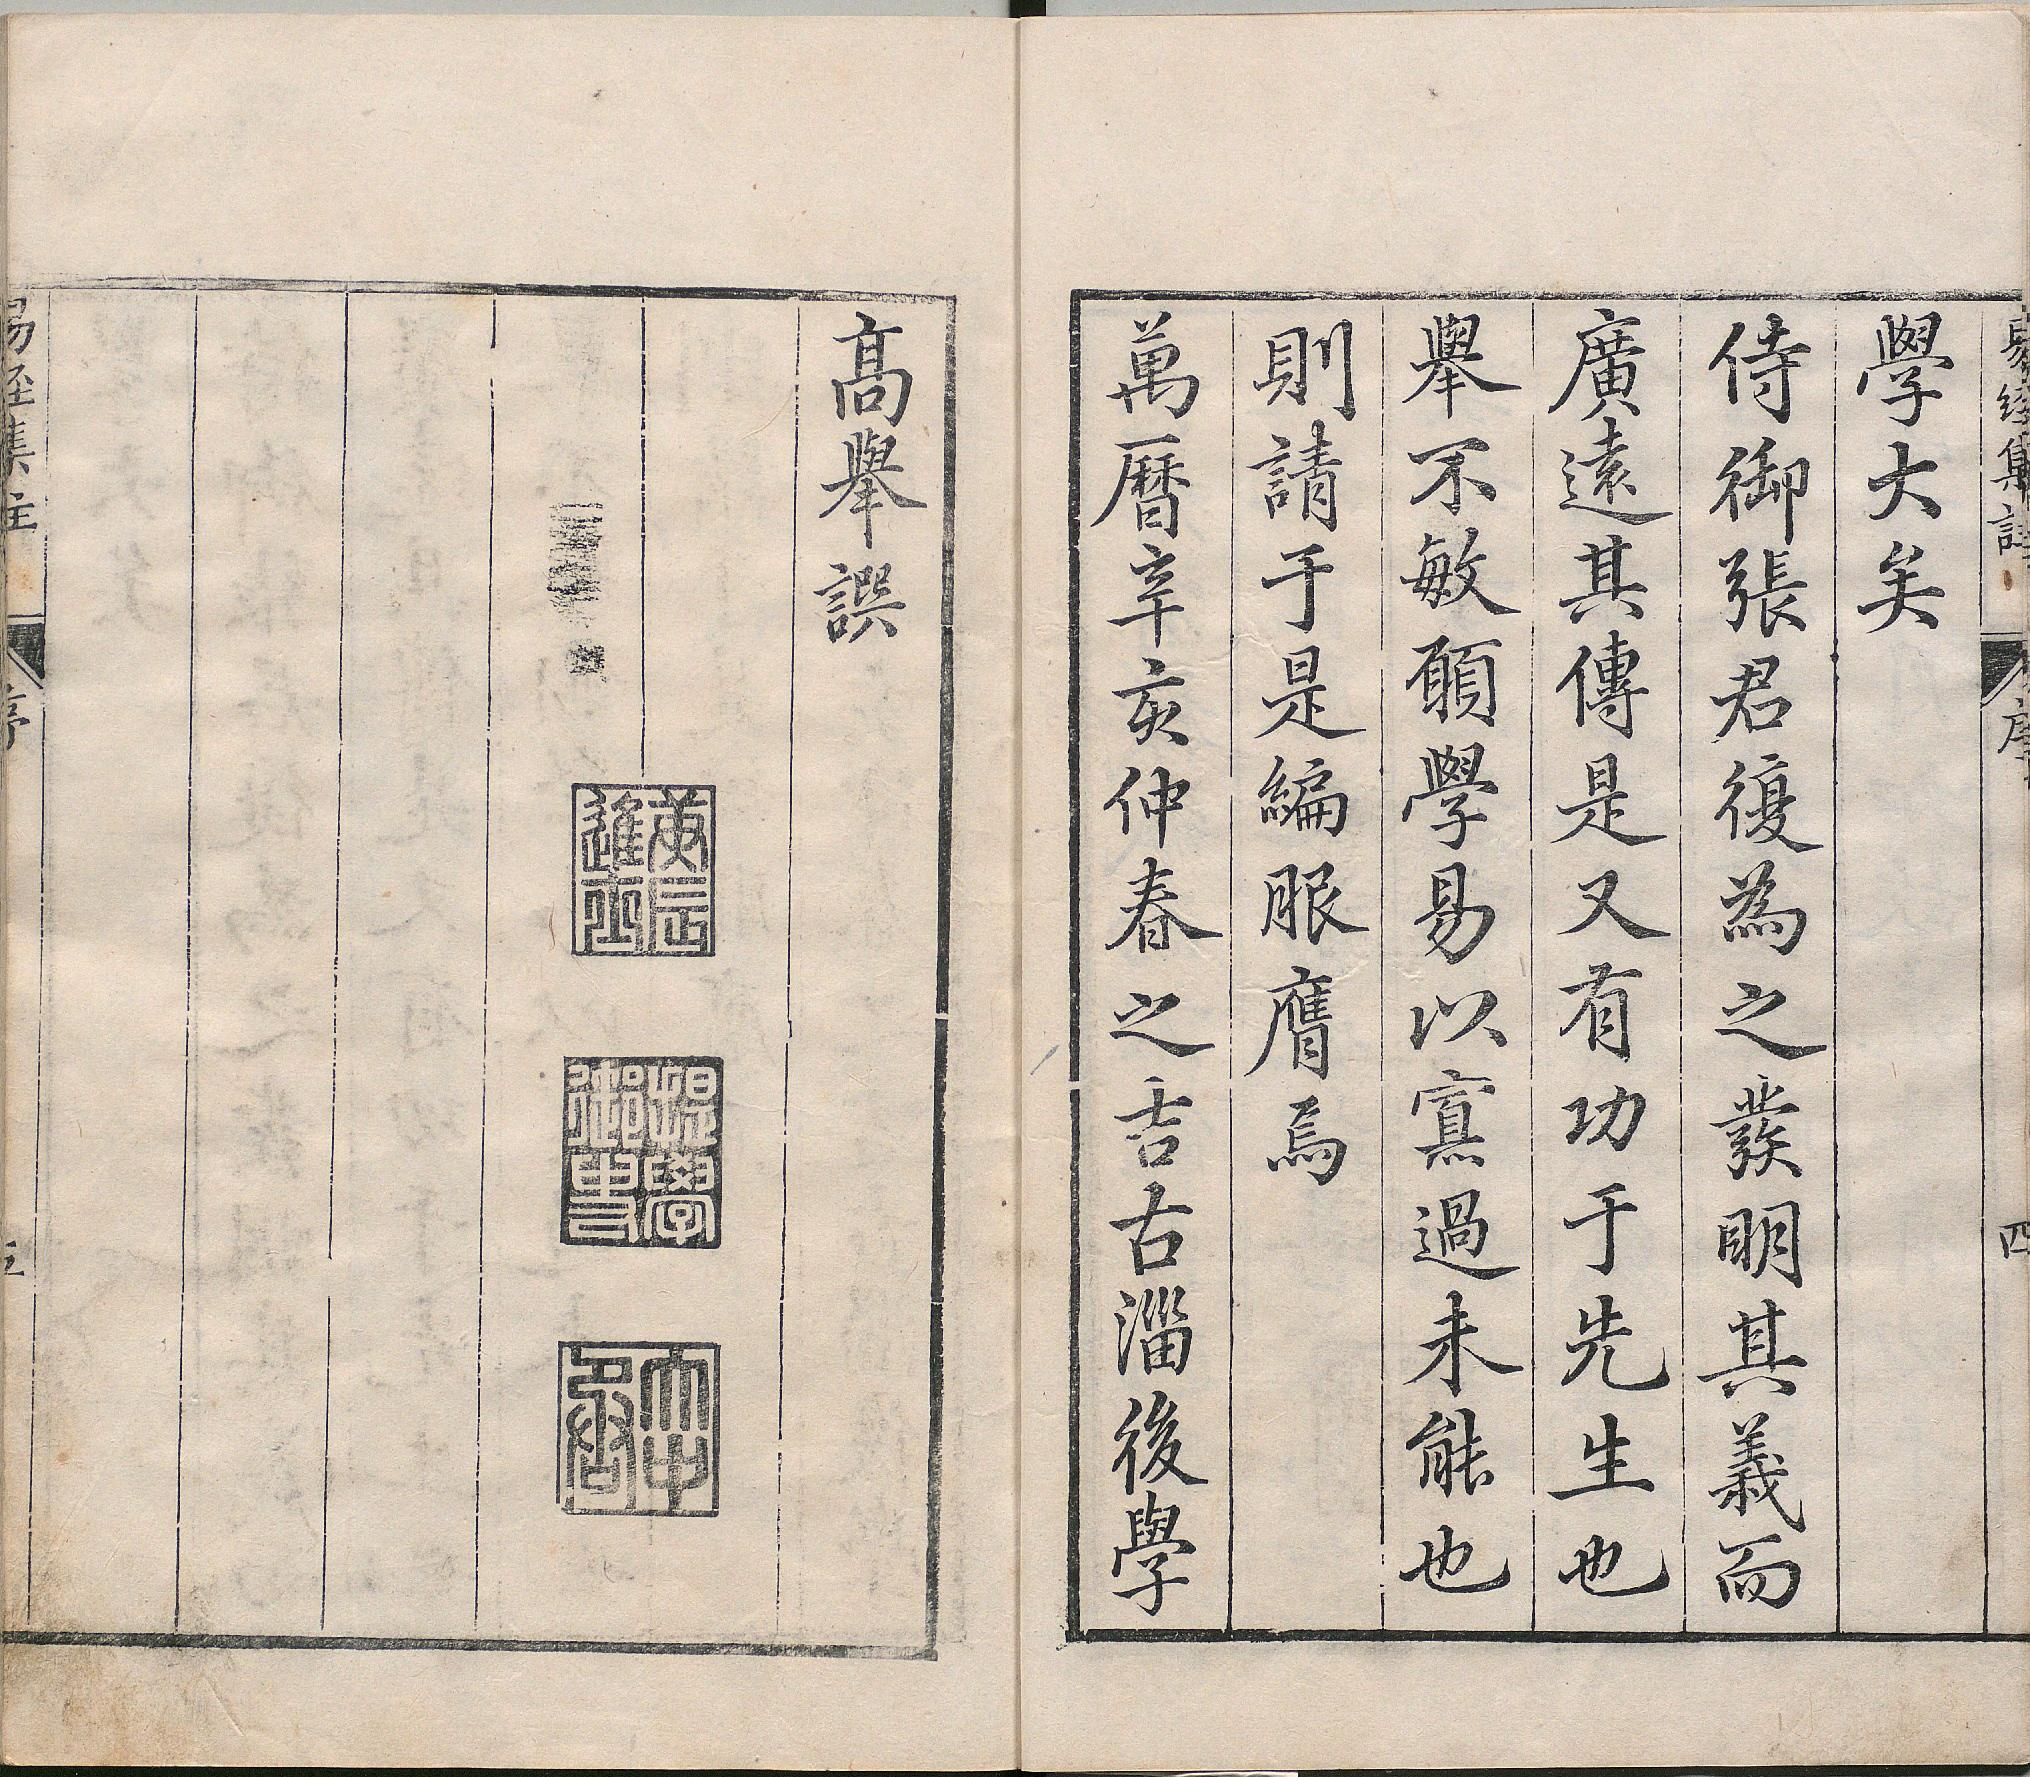 易經集註
序
四
學大矣
侍御張君復為之發明其義而
廣遠其傳是又有功于先生也
舉不敏願學易以寡過未能也
則請于是編服膺焉
萬曆辛亥仲春之吉古淄後學
高舉譔
庚辰進士
大中
易經集註
序
五